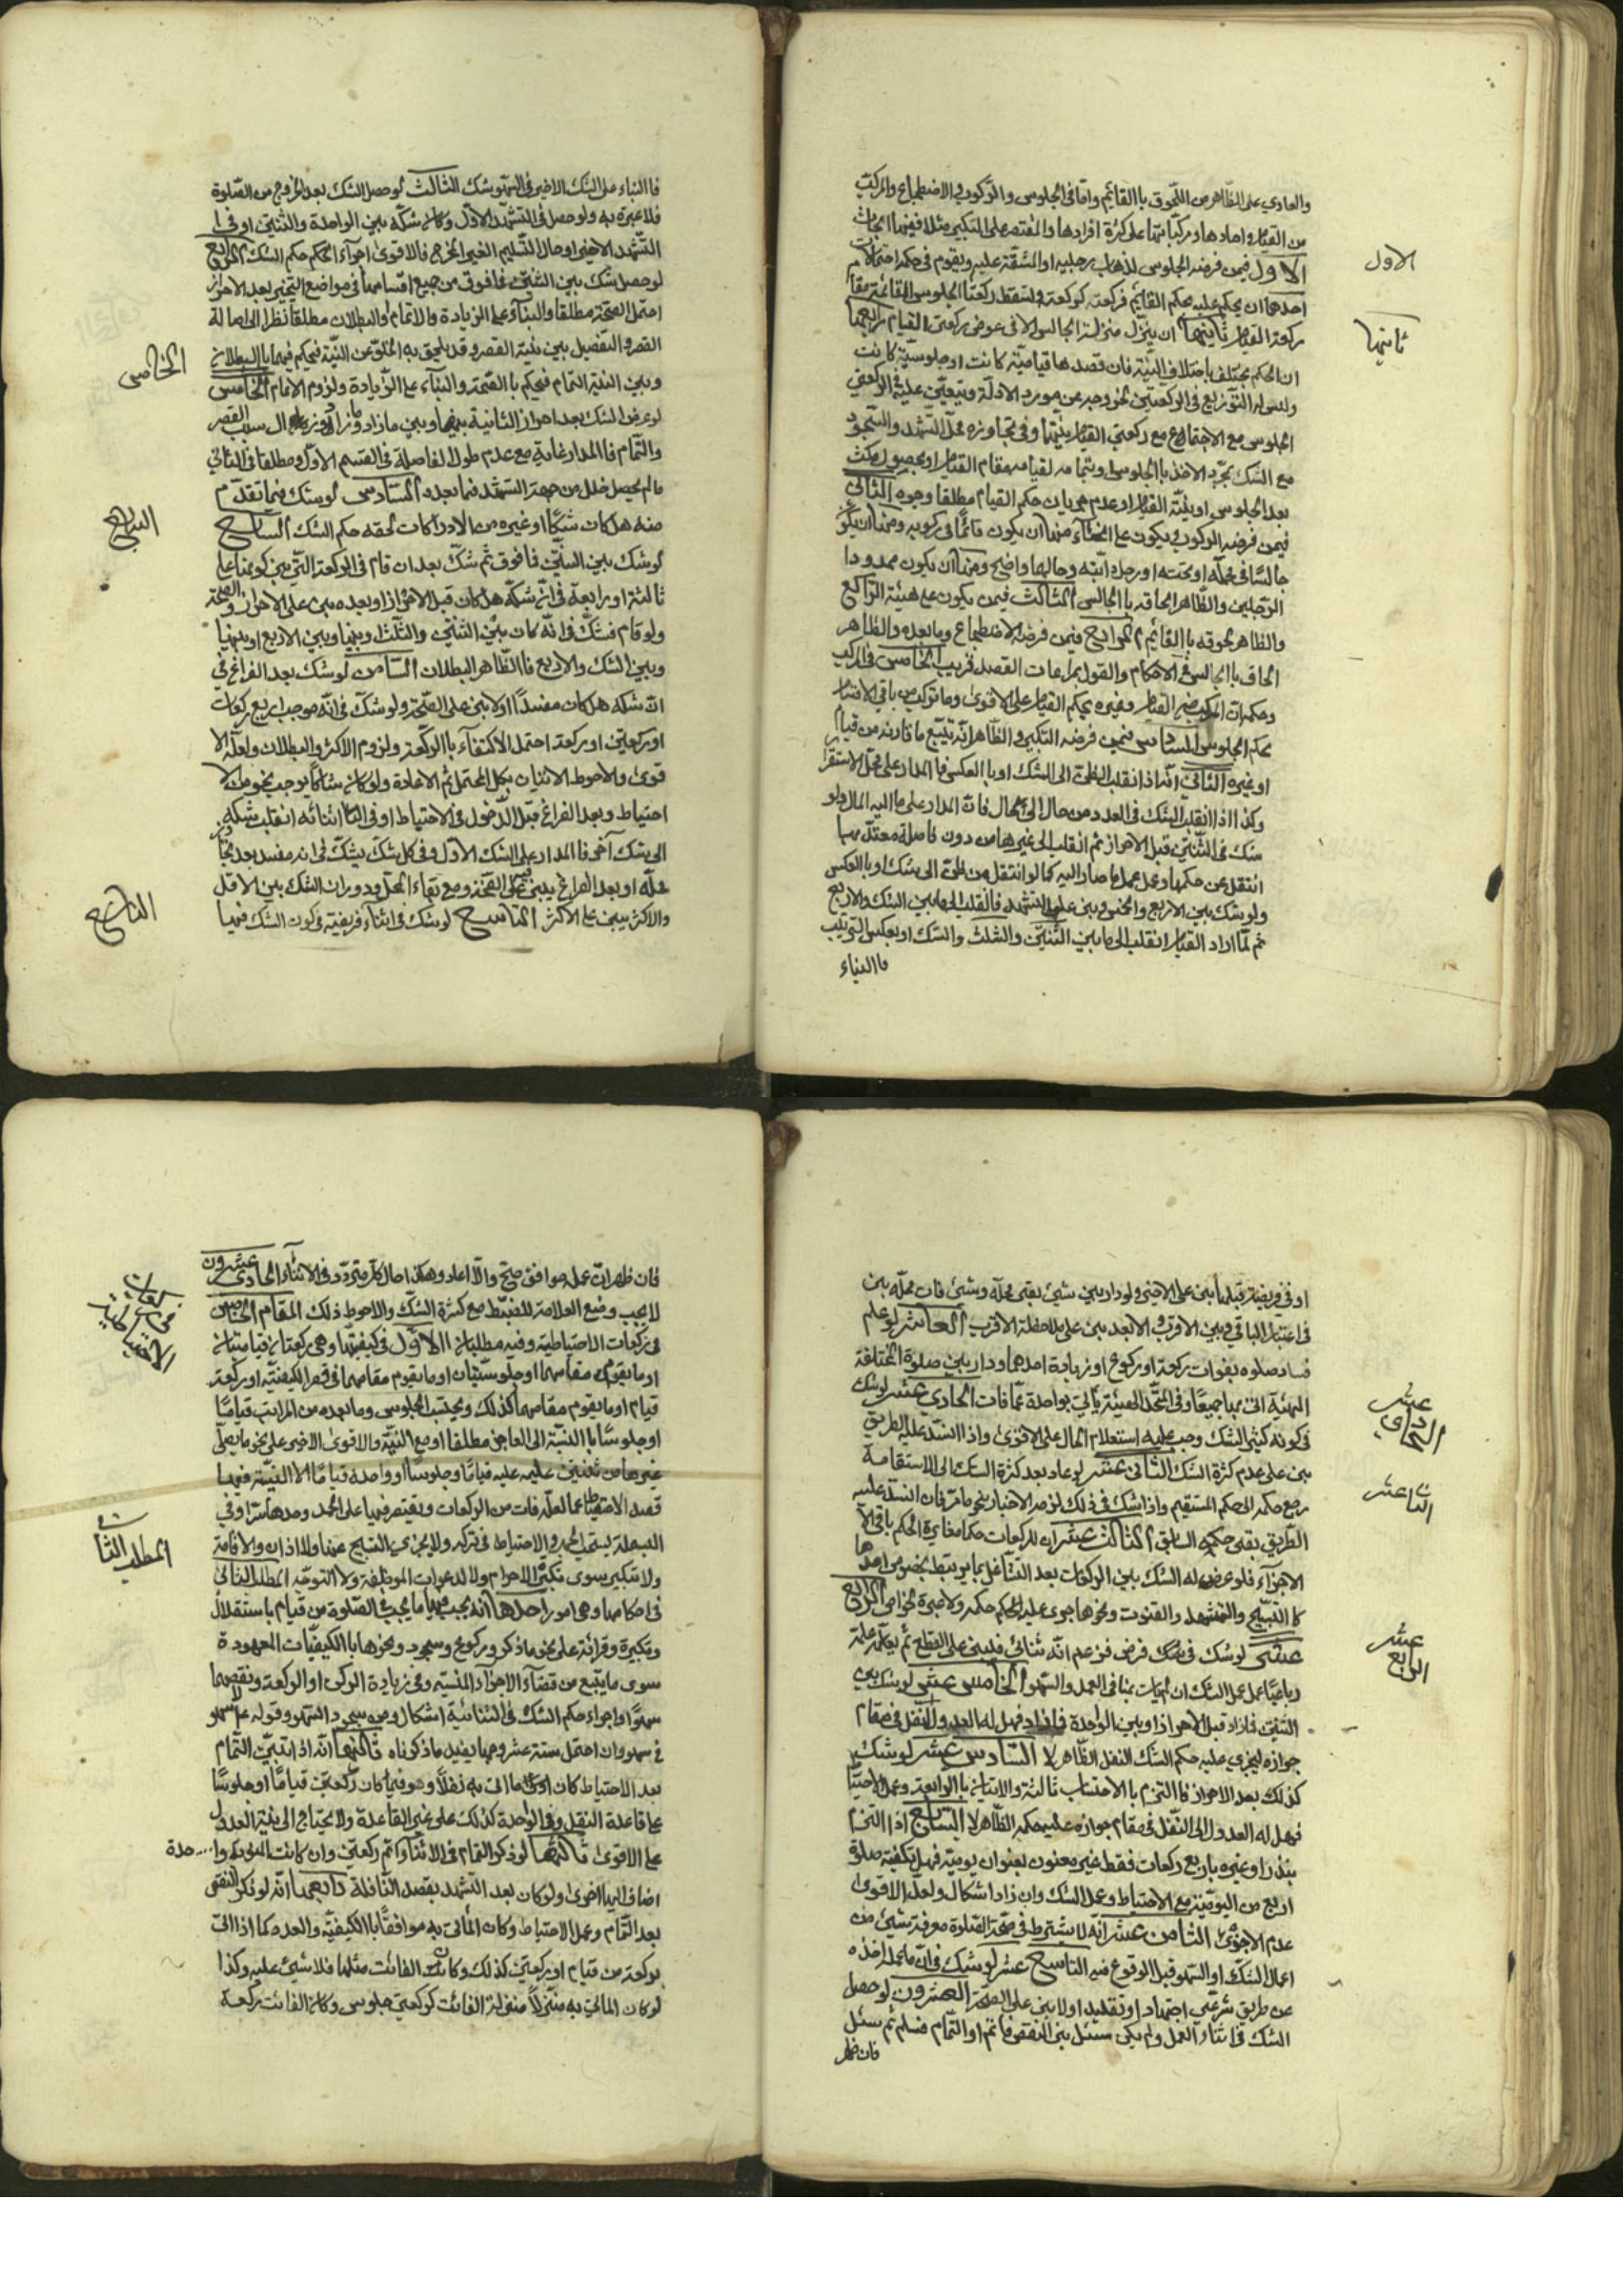 والعادي على الظاهر من اللحوق باالقائم واما في الجلوس والركوب والاضطجاع والمركب
من القيام واحادها ومركباتها على كثرة افرادها والمقتصر على التكبير مثلا ففيهما ابحاث
الاول فيمن فرضه الجلوس لذهاب رجليه او المشقة عليه ويقوم في حكمه احتمالات
احدها ان يحكم عليه بحكم القائم فركعته كركعته فتسقط ركعتا الجلوس القائمة مقام
ركعة القيام ثانيها ان ينزل منزلة الجالس الا في عوض ركعتي القيام رابعها
ان الحكم يختلف باختلاف النية فان قصدها قيامية كانت او جلوسية كانت
وليس له التوزيع في الركعتين لخروجه عن مورد الادلة ويتعين عليه في الركعتي
الجلوس مع الاجتماع مع ركعتي القيام بنيتها وفي تجاوزه محل التشهد والسجود
مع الشك بمجرد الاخذ باالجلوس او بتمامه لقيامه مقام القيام او بحصول مكث
بعد الجلوس او بنية القيام او عدم جريان حكم القيام مطلقا وجوه الثاني
فيمن فرضه الركوب ويكون على انحاء منها ان يكون قائما في ركوبه ومنها ان يكون
جالسا في محله او تحته او رحل دابته وحالها واضح ومنها ان يكون ممدودا
الرجلين والظاهر الحاقه باالجالس الثالث فيمن يكون على هيئة الراكع
والظاهر لحوقه باالقائم الرابع فيمن فرضه الاضطجاع وما بعده والظاهر
الحاقه باالجالس في الاحكام والقول بمراعات القصد قريب الخامس في المركب
وحكمه ان المركب من القيام وغيره بحكم القيام على الاقوى وما تركب من باقي الاقسام
بحكم الجلوس السادس فيمن فرضه التكبير والظاهر انه يتبع ما قارنه من قيام
او غيره الثاني انه اذا انقلب الظن الى الشك او باالعكس فاالمدار على محل الاستقرار
وكذا اذا انقلب الشك في العدد من حال الى حال فان المدار على ما اليه المال ولو
شك في الثنتين قبل الاحراز ثم انقلب الى غيرها من دون فاصلة معتد بها
انتقل عن حكمها وعمل عمل ما صار اليه كما لو انتقل من ظن الى شك او باالعكس
ولو شك بين الاربع والخمس وبنى عليها للتشهد فانقلب الى ما بين الشك والاربع
ثم لما اراد القيام انقلب الى ما بين الثنتين والثلث والشك او بعكس الترتيب
فاالبناء
الاول
ثانيها
فاالبناء على الشك الاخير في السهو شك الثالث لو حصل الشك بعد الخروج من الصلوة
فلا عبرة به ولو حصل في التشهد الاول وكان شكه بين الواحدة والثنتين او في
التشهد الاخير او حال التسليم الغير المخرج فالاقوى اجراء الحكم حكم الشك الرابع
لو حصل شك بين الثنتين فما فوق من جميع اقسامها في مواضع التخيير بعد الاحراز
احتمل الصحة مطلقا والبناء على الزيادة والاتمام والبطلان مطلقا نظرا الى اصالة
القصر والتفصيل بين نية القصر وقد يلحق به الخلو عن النية فيحكم فيهما باالبطلان
وبين النية التمام فيحكم باالصحة والبناء على الزيادة ولزوم الاتمام الخامس
لو عرض الشك بعد احراز الثانية بينها وبين ما زاد
والتمام فاالمدار غاية مع عدم طول الفاصلة في القسم الاول ومطلقا في الثاني
ما لم يحصل خلل من جهة التشهد فما بعده السادس لو شك فيما تقدم
منه هل كان شكا او غيره من الادراكات لحقه حكم الشك السابع
لو شك بين الثنتين فما فوق ثم شك بعد ان قام في الركعة التي بين كونها على
ثالثة او رابعة في انه شكه هل كان قبل الاحراز او بعده بنى على الاحراز والصحة
ولو قام فشك في انه كان بين الثنتين والثلث او بينها وبين الاربع او بينها
وبين الشك والاربع فاالظاهر البطلان الثامن لو شك بعد الفراغ في
ان شكه هل كان مفسدا او لا بنى على الصحة ولو شك في انه موجب اربع ركعات
او ركعتين او ركعة احتمل الاكتفاء باالركعة ولزوم الاكثر والبطلان ولعله الا
قوى والاحوط الاتيان بكل المحتمل ثم الاعادة ولو كان شاكا يوجب نحو من الا
احتياط وبعد الفراغ قبل الدخول في الاحتياط او في اثنائه انقلب شكه
الى شك آخر فاالمدار على الشك الاول وفي كل شك يشك في انه مفسد بعد تجاوز
محله او بعد الفراغ يبنى على الصحة ومع بقاء المحل ودوران الشك بين الاقل
والاكثر يبنى على الاكثر التاسع لو شك في اثناء فريضته في كون الشك فيها
الخامس
السابع
التاسع
او في فريضة قبلها بنى على الاخير ولو دار بين شيئ بقى محله وشيئ فات محله بنى
في اعتبار الباقي وبين الاقرب والابعد بنى على ملاحظة الاقرب العاشر لو علم
فساد صلوه بفوات ركعة او ركوع او زيادة احدهما ودار بين صلوة المختلفة
الهيئة اتى بها جميعا وفي المتحد الهيئة يأتي بواحدة عما فات الحادي عشر لو شك
في كونه كثير الشك وجب عليه استعلام الحال على الاقوى واذا انسد عليه الطريق
بنى على عدم كثرة الشك الثاني عشر لو عاد بعد كثرة الشك الى الاستقامة
رجع حكمه الى حكم المستقيم واذا شك في ذلك لزمه الاختبار بنحو ما مر فان انسد عليه
الطريق بقى حكمه السابق الثالث عشر ان للركعات حكما مغايرة لحكم باقي الا
الاجزاء فلو عرض له الشك بين الركعات بعد التشاغل بما يرتبط بخصوص احدها
كاالتسبيح والتشهد والقنوت ونحوها جرى عليه الحكم حكمه ولا خيرة لخواص الرابع
عشر لو شك في شك فرض فزعم انه ثنائي فليبنى على القطع ثم يعلم علمه
رباعيا عمل عمل الشك ان لم يات بمنافي العمد والسهو الخامس عشر لو شك بين
الثنتين فزاد قبل الاحراز او بين الواحدة فازاد فهل له العدول للنفل في مقام
جوازه ليجري عليه حكم الشك النفل الظاهر لا السادس عشر لو شك
كذلك بعد الاحراز فاالتزم باالاحتساب ثالثة والاتيان باالرابعة وعمل الاحتياط
فهل له العدول الى النفل في مقام جوازه عليه حكمه الظاهر لا السابع اذا التزم
بنذر او غيره باربع ركعات فقط غير معنون بعنوان يومية فهل تكفيه صلوة
اربع من اليومية مع الاحتياط وعمل الشك وان زاد اشكال ولعل الاقوى
عدم الاجزئ الثامن عشر انه لا يشترط في صحة الصلوة معرفة شيئ من
اعمال الشك او السهو قبل الوقوع فيه التاسع عشر لو شك في ان ما عمله اخذه
عن طريق شرعي اجتهاد او تقليد او لا بنى على الصحة العشرون لو حصل
الشك في اثناء العمل ولم يكن سئل بنى النقص فاتم او التمام فسلم ثم سئل
فان ظهر
الحادي عشر
الثاني عشر
الرابع عشر
فان ظهر ان عمله موافق صح والا اعاد وهكذا حال كل متردد في الاثناء الحادي عشرون
لا يجب وضع العلامة للضبط مع كثرة الشك والاحوط ذلك المقام الخامس
في ركعات الاحتياطية وفيه مطلبان الاول في كيفيتها وهي ركعتان قيامتان
او ما يقوم مقامهما او جلوستيان او ما يقوم مقامهما في قصر الكيفية او ركعة
قيام او ما يقوم مقامهما كذلك ويحتسب الجلوس وما بعده من المراتب قياما
او جلوسا باالنسبة الى العاجز مطلقا او مع النية والاقوى الاخير على نحو ما يصلي
غيرها من ثنتين عليه قياما وجلوسا او واحدة قياما الا النية فيها
قصد الاحتياط عما لعله فات من الركعات ويقتصر فيها على الحمد وحدها سرا وفي
البسملة يستحب الجهر والاحتياط في تركه ولا يجزي التسبيح عنها ولا اذان والاقامة
ولا تكبير سوى تكبير الاحرام ولا الدعوات الموظفة ولا التوجه المطلب الثاني
في احكامها وهي امور احدها انه يجب فيها ما يجب في الصلوة من قيام باستقلال
وتكبيرة وقرائة على نحو ما ذكر وركوع وسجود ونحوها باالكيفيات المعهودة
سوى ما يتبع من قضاء الاجزاء المنسيه وفي زيادة الركن او الركعة ونقصهما
سهوا واجراء حكم الشك في الثنائية اشكال ومن سجود السهو وقوله ع لا سهو
في سهو وان احتمل ستة عشر وجها يفيد ما ذكرناه ثانيها انه اذا تبين التمام
بعد الاحتياط كان ما اتى به نفلا وهو فيما كان ركعتين قياما او جلوسا
على قاعدة النفل وفي الواحدة كذلك على غير القاعدة ولا يحتاج الى نية العدول
على الاقوى ثالثها لو ذكر التمام في الاثناء اتم ركعتين وان كانت المنويه واحدة
اضاف اليها اخرى ولو كان بعد التشهد بقصد النافلة رابعها انه لو ذكر النقص
بعد التمام وعمل الاحتياط وكان المأتى به موافقا باالكيفية والعدد كما اذا اتى
بركعة من قيام او ركعتين كذلك وكانت الفائت مثلها فلا شيئ عليه وكذا
لو كان المأتي به منزلا منزلة الفائت كركعتي جلوس وكان الفائت ركعة
في ركعات
الاحتياطية
المطلب الثاني